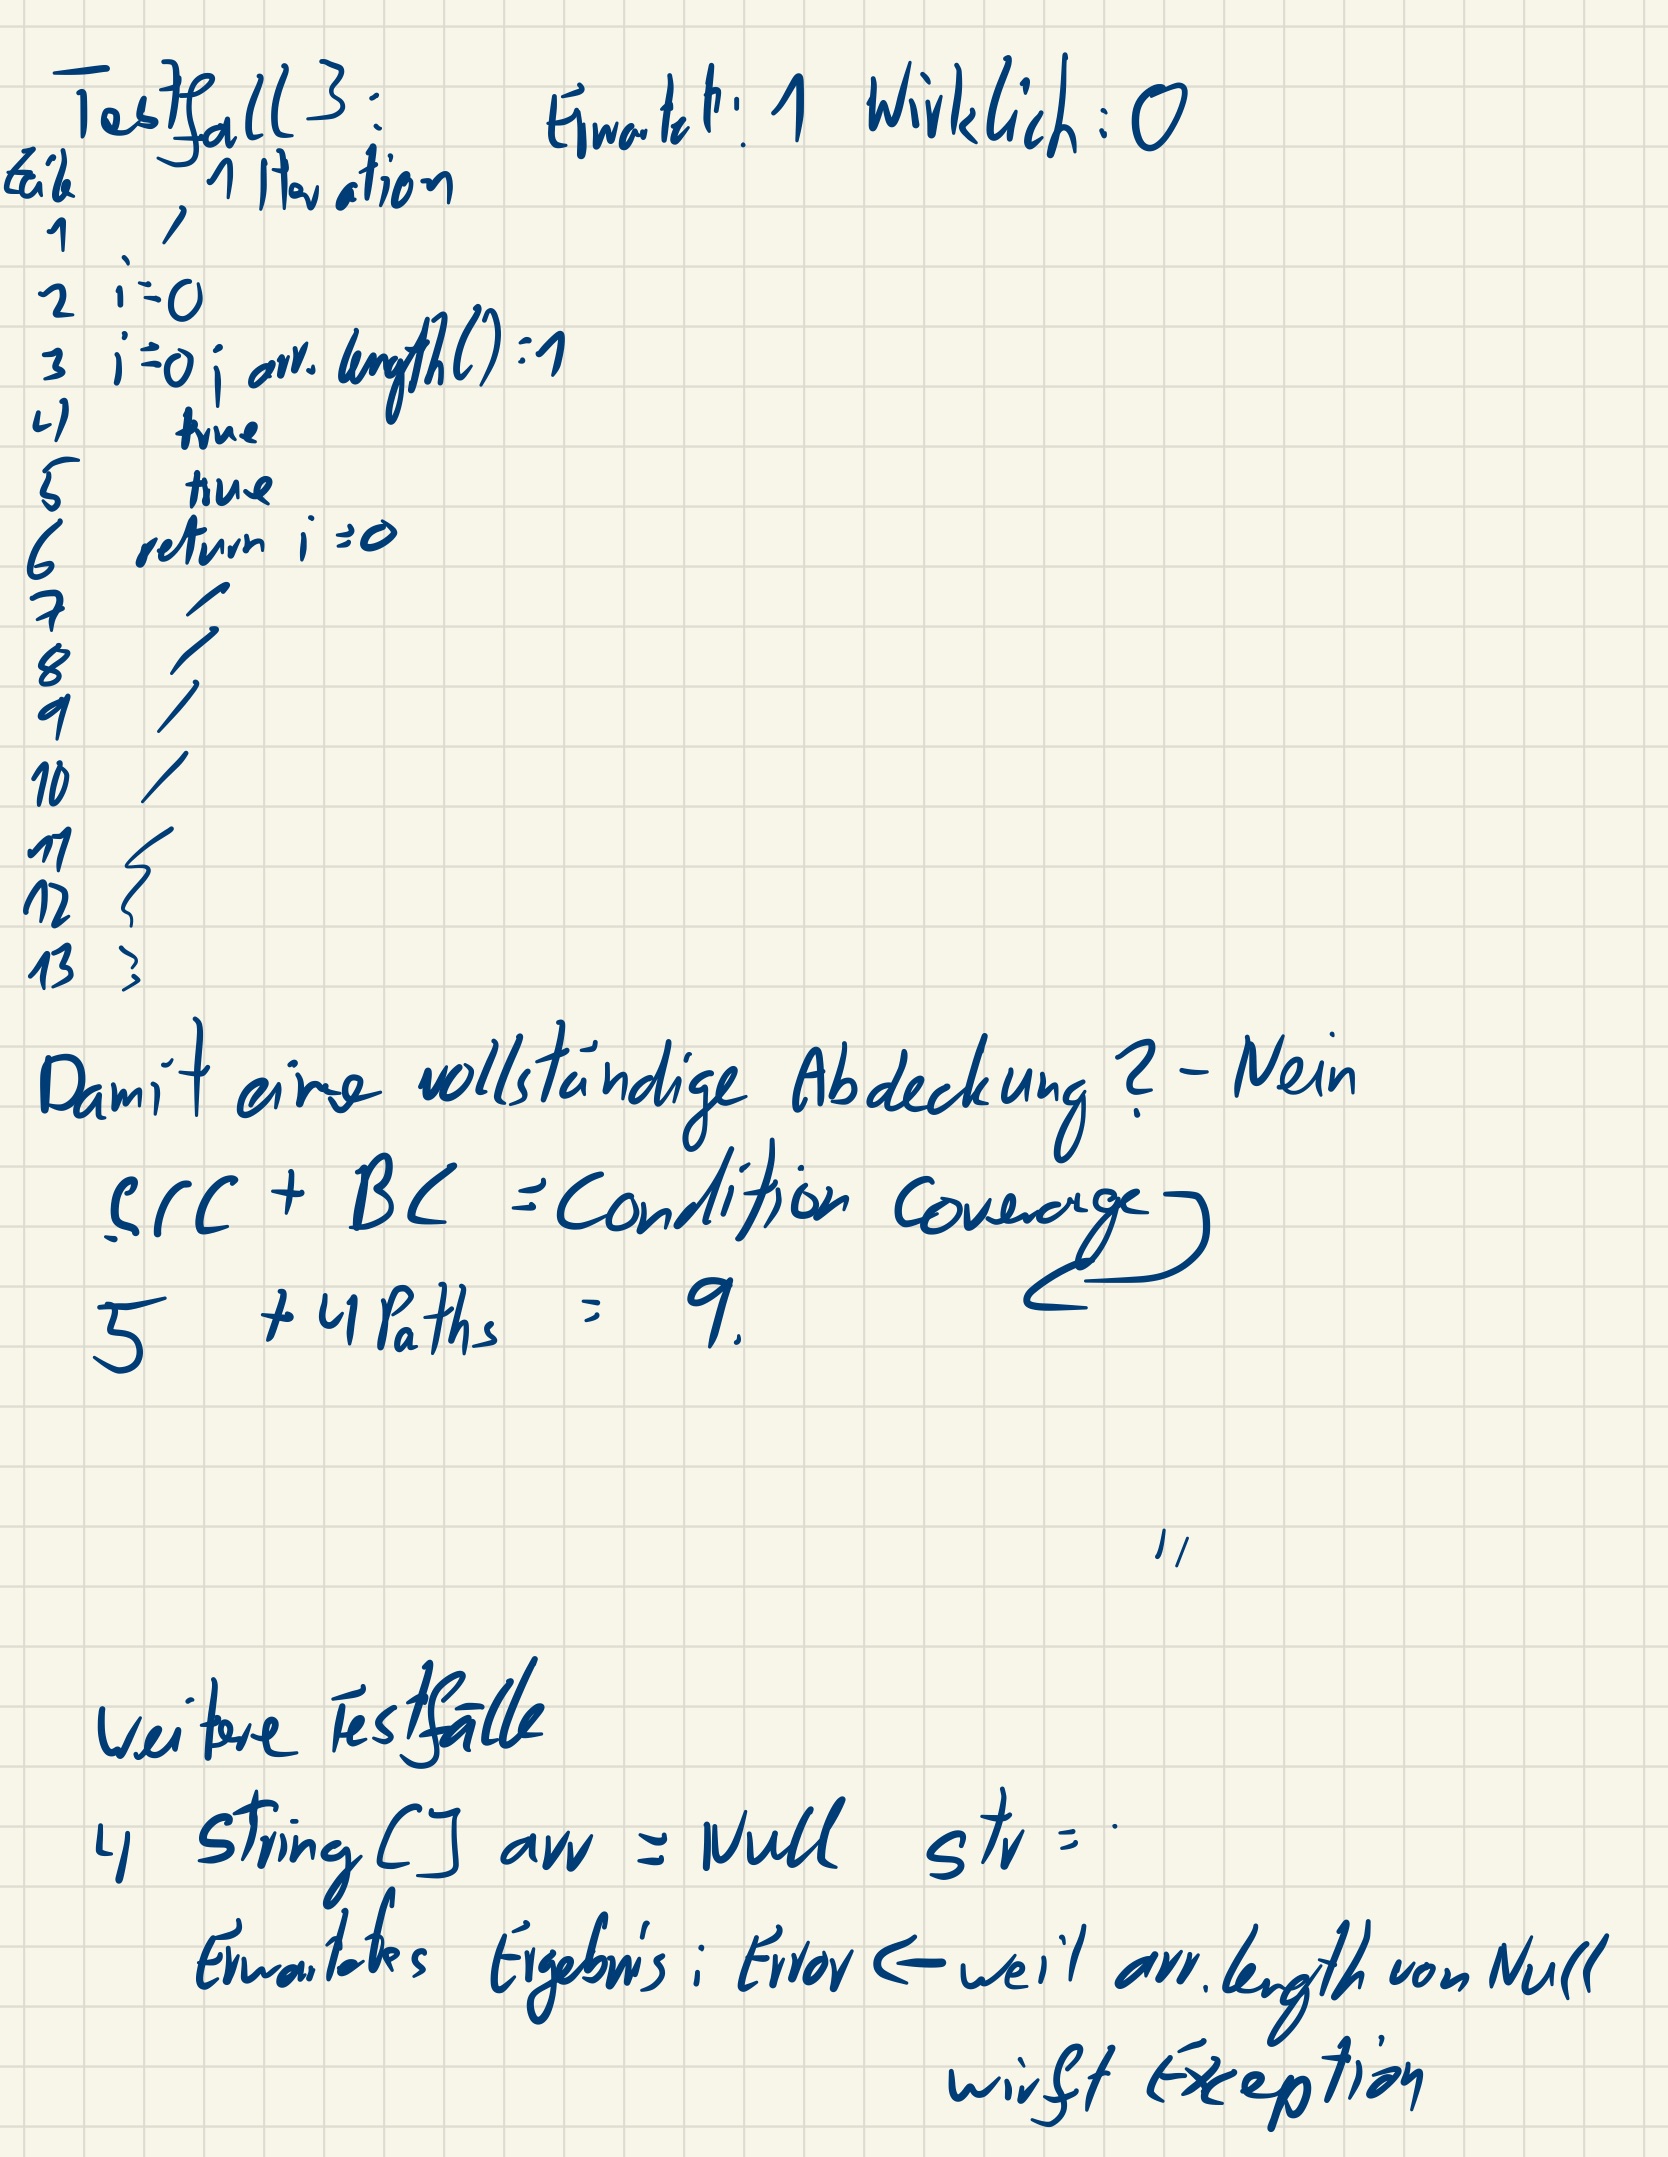 Testfall 3: Erwartet: 1 Wirklich: 0
Zeile 1 Iteration
1 /
2 i=0
3 i=0; arr.length()=1
4 true
5 true
6 return i=0
7 /
8 /
9 /
10 /
11
12
13
Damit eine vollständige Abdeckung? - Nein
SCC + BC = Condition Coverage
5 + 4 Paths = 9.
"
weitere Testfälle
4 String[] arr = Null str =
Erwartetes Ergebnis: Error ← weil arr.length von Null
wirft Exception